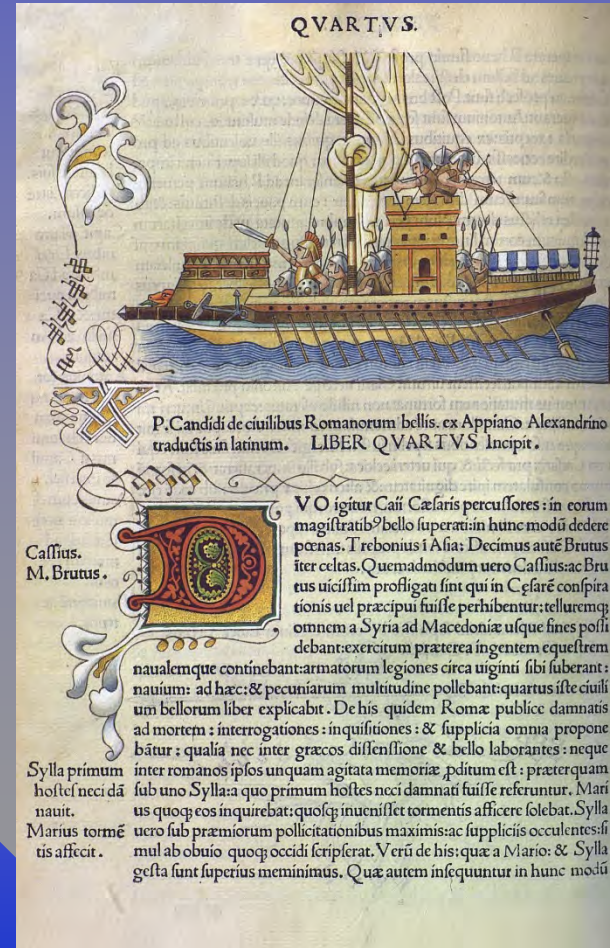 QVARTVS.
P. Candidi de ciuilibus Romanorum bellis. ex Appiano Alexandrino
traductis in latinum. LIBER QVARTVS Incipit.
DVO igitur Caii Cæsaris percussores: in eorum
magistratibꝰ bello superati: in hunc modū dedere
pœnas. Trebonius ī Asia: Decimus autē Brutus
īter celtas. Quemadmodum uero Cassius: ac Bru
tus uicissim profligati sint qui in Cęsarē conspira
tionis uel præcipui fuisse perhibentur: telluremqꝫ
omnem a Syria ad Macedoniæ usque fines possi
debant: exercitum præterea ingentem equestrem
naualemque continebant: armatorum legiones circa uiginti sibi suberant:
nauium: ad hæc: & pecuniarum multitudine pollebant: quartus iste ciuili
um bellorum liber explicabit. De his quidem Romæ publice damnatis
ad mortem: interrogationes: inquisitiones: & supplicia omnia propone
bātur: qualia nec inter græcos dissensione & bello laborantes: neque
inter romanos ipsos unquam agitata memoriæ ꝓditum est: præterquam
sub uno Sylla: a quo primum hostes neci damnati fuisse referuntur. Mari
us quoqꝫ eos inquirebat: quosqꝫ inuenisset tormentis afficere solebat. Sylla
uero sub præmiorum pollicitationibus maximis: ac suppliciis occulentes: si
mul ab obuio quoqꝫ occidi scripserat. Verū de his: quæ a Mario: & Sylla
gesta sunt superius meminimus. Quæ autem insequuntur in hunc modū
Cassius.
M. Brutus.
Sylla primum
hostes neci dā
nauit.
Marius tormē
tis affecit.